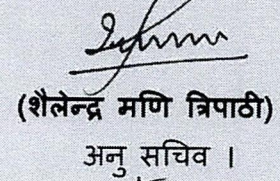 (शैलेन्द्र मणि त्रिपाठी)
अनु सचिव ।